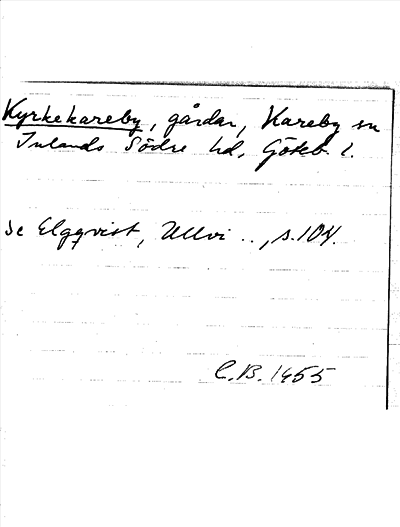 Kyrkekareby, gårdar, Kareby sn
Inlands Södre hd, Göteb. l.
se Elgqvist, Ullvi .., s. 104.
C.B. 1955